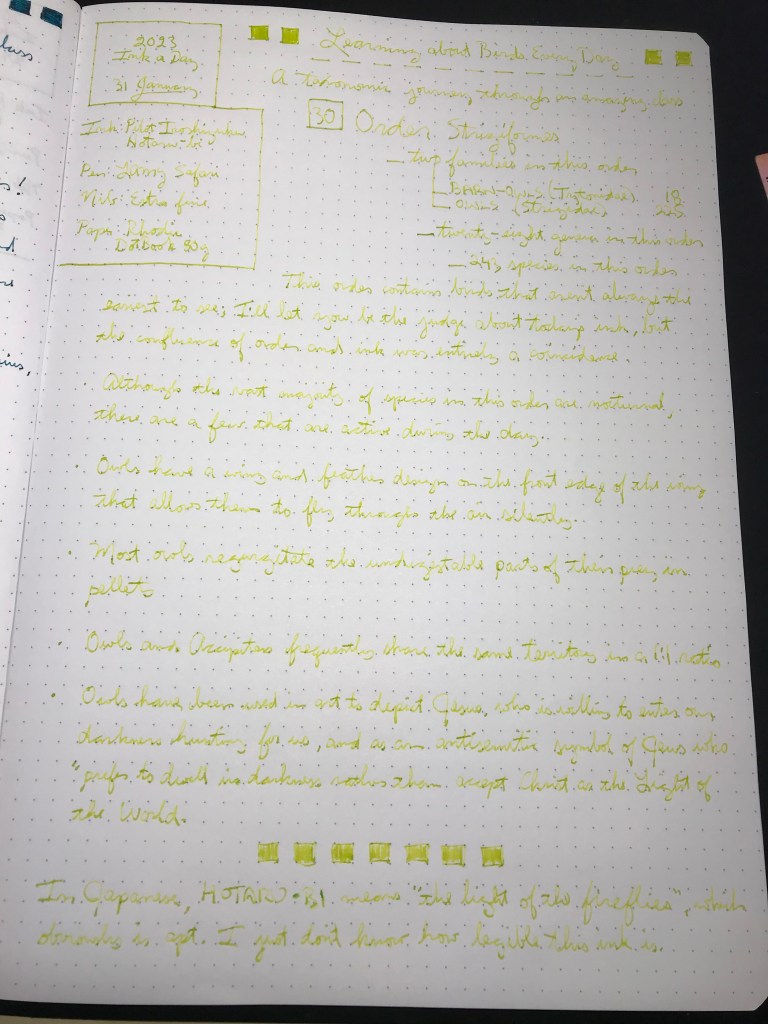 lass
s!
2023
Ink a Day
31 January
Learning about Birds Every Day
A taxonomic journey through an amazing class
Ink: Pilot Iroshizuku
Hotaru-bi
Pen: Lamy Safari
Nib: Extra fine
Paper: Rhodia
Dotbook 80g
30 Order Strigiformes
— two families in this order
Barn-Owls (Tytonidae) 18
Owls (Strigidae)
— twenty-eight genera in this order
— 243 species in this order
This order contains birds that aren't always the
easiest to see; I'll let you be the judge about today's ink, but
the confluence of order and ink was entirely a coincidence.
· Although the vast majority of species in this order are nocturnal,
there are a few that are active during the day.
· Owls have a wing and feather design on the front edge of the wing
that allows them to fly through the air silently.
· Most owls regurgitate the undigestable parts of their prey in
pellets
· Owls and Accipiters frequently share the same territory in a 1:1 ratio.
· Owls have been used in art to depict Jesus, who is willing to enter our
darkness hunting for us, and as an antisemitic symbol of Jews who
"prefer to dwell in darkness rather than accept Christ as the Light of
the World.
In Japanese, HOTARU-BI means "the light of the fireflies", which
obviously is apt. I just don't know how legible this ink is.